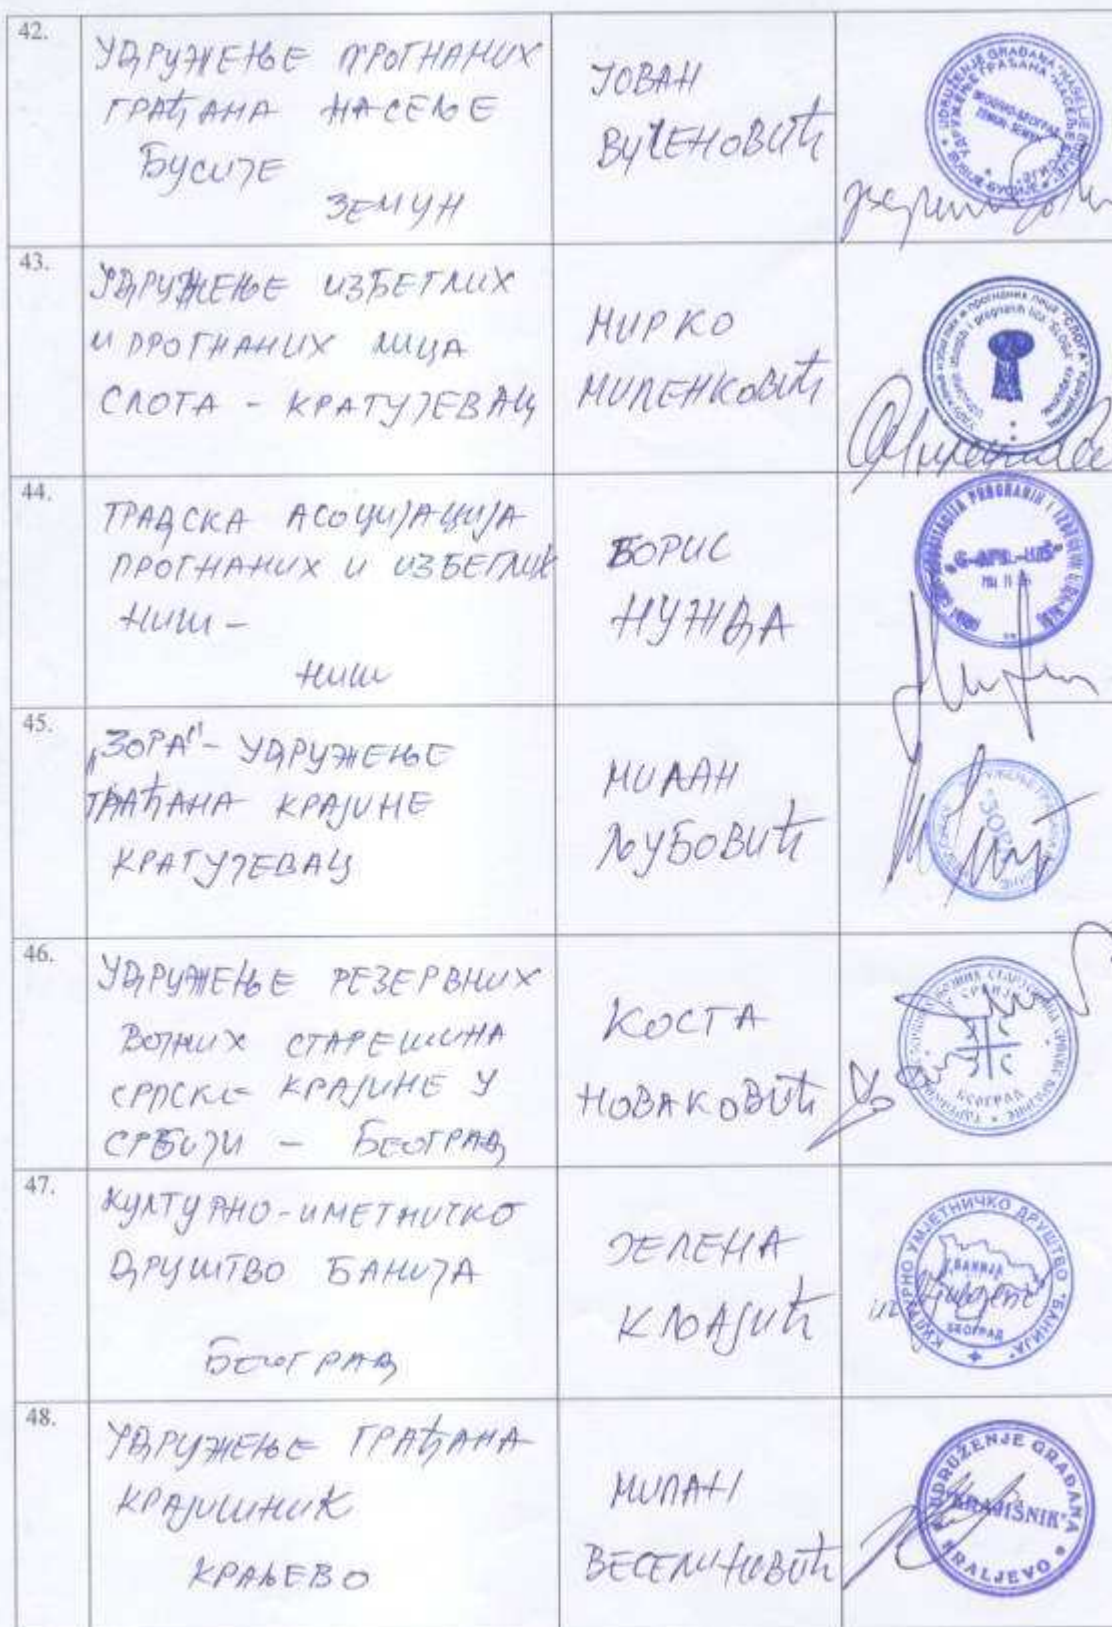 42.
УДРУЖЕЊЕ ПРОГНАНИХ
ГРАЂАНА НАСЕЉЕ
БУСИЈЕ
ЗЕМУН
ЈОВАН
ВУЧЕНОВИЋ
43.
УДРУЖЕЊЕ ИЗБЕГЛИХ
И ПРОГНАНИХ ЛИЦА
СЛОГА - КРАГУЈЕВАЦ
МИРКО
МИЛЕНКОВИЋ
44.
ГРАДСКА АСОЦИЈАЦИЈА
ПРОГНАНИХ И ИЗБЕГЛИХ
НИШ -
НИШ
БОРИС
НУЖДА
"G-APIL-NIŠ"
45.
„ЗОРА" - УДРУЖЕЊЕ
ГРАЂАНА КРАЈИНЕ
КРАГУЈЕВАЦ
МИЛАН
ЉУБОВИЋ
46.
УДРУЖЕЊЕ РЕЗЕРВНИХ
ВОЈНИХ СТАРЕШИНА
СРПСКЕ КРАЈИНЕ У
СРБИЈИ - БЕОГРАД
КОСТА
НОВАКОВИЋ
БЕОГРАД
47.
КУЛТУРНО-УМЕТНИЧКО
ДРУШТВО БАНИЈА
БЕОГРАД
ЈЕЛЕНА
КЉАЈИЋ
КУЛТУРНО УМЈЕТНИЧКО ДРУШТВО "БАНИЈА"
БАНИЈА
БЕОГРАД
48.
УДРУЖЕЊЕ ГРАЂАНА
КРАЈИШНИК
КРАЉЕВО
МИЛАН
ВЕСЕЛИНОВИЋ
UDRUŽENJE GRAĐANA
"KRAJIŠNIK"
KRALJEVO